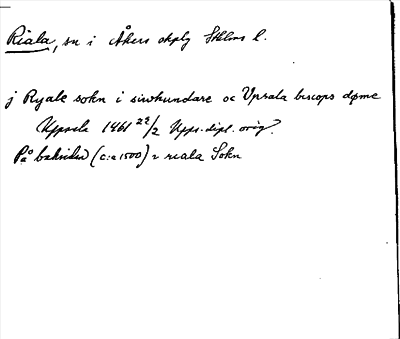 Riala, sn i Åkers skplg Sthlms l.
j Ryale sokn i siwhundare oc Vpsala biscops døme
Uppsala 1461 22/2 Upps. dipl. orig.
På baksidan (c:a 1500) = reala Sokn